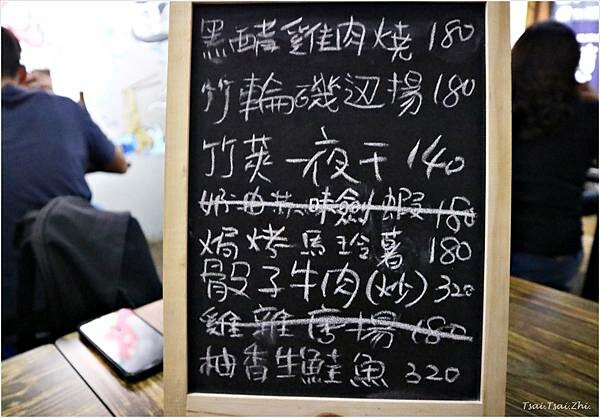 黑醋雞肉燒 180
竹輪磯辺揚 180
竹莢一夜干 140
奶油 味劍蝦 180
焗烤馬玲薯 180
骰子牛肉(炒) 320
雞 唐揚 180
柚香生鮭魚 320
Tsai.Tsai.Zhi.